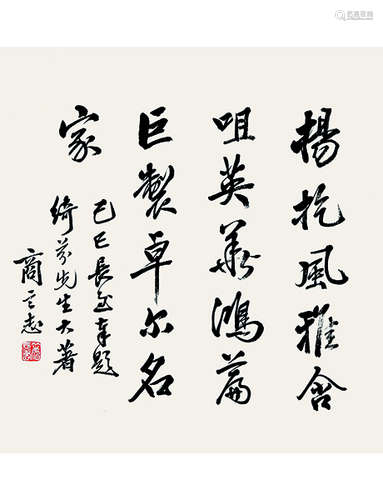 揚扢風雅含
咀英華鴻篇
巨製卓尔名
家
己巳長至奉題
綺芬先生大著
商言志